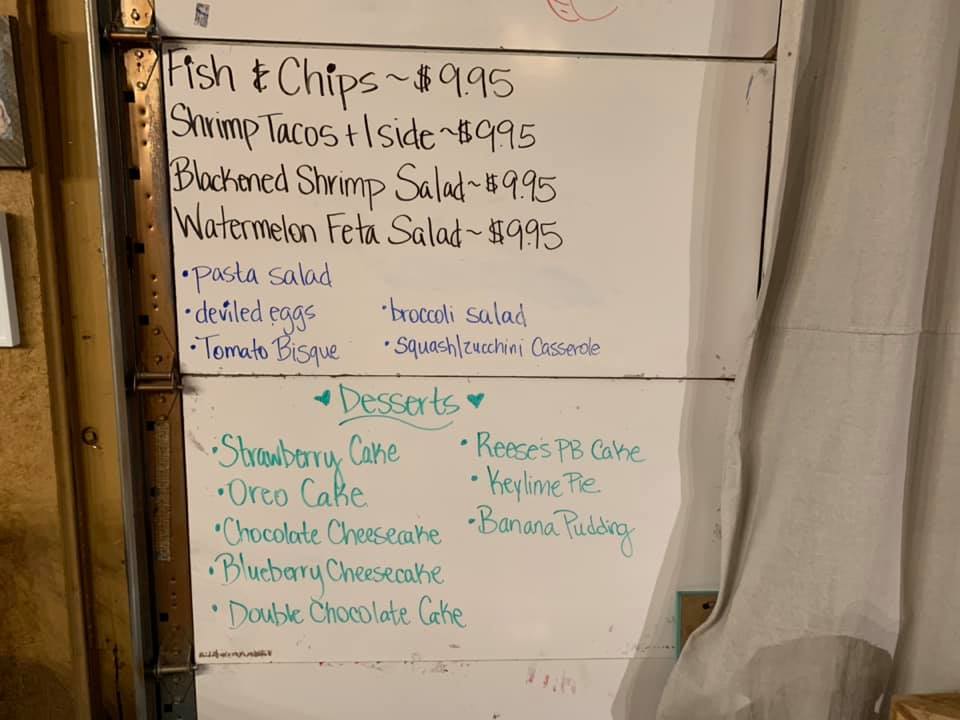 Fish & Chips ~ $9.95
Shrimp Tacos + 1 side ~ $9.95
Blackened Shrimp Salad ~ $9.95
Watermelon Feta Salad ~ $9.95
• pasta salad
• deviled eggs
• broccoli salad
• Tomato Bisque
• Squash/zucchini Casserole
♥ Desserts ♥
• Strawberry Cake
• Reese's PB Cake
• Oreo Cake
• Keylime Pie
• Chocolate Cheesecake
• Banana Pudding
• Blueberry Cheesecake
• Double Chocolate Cake